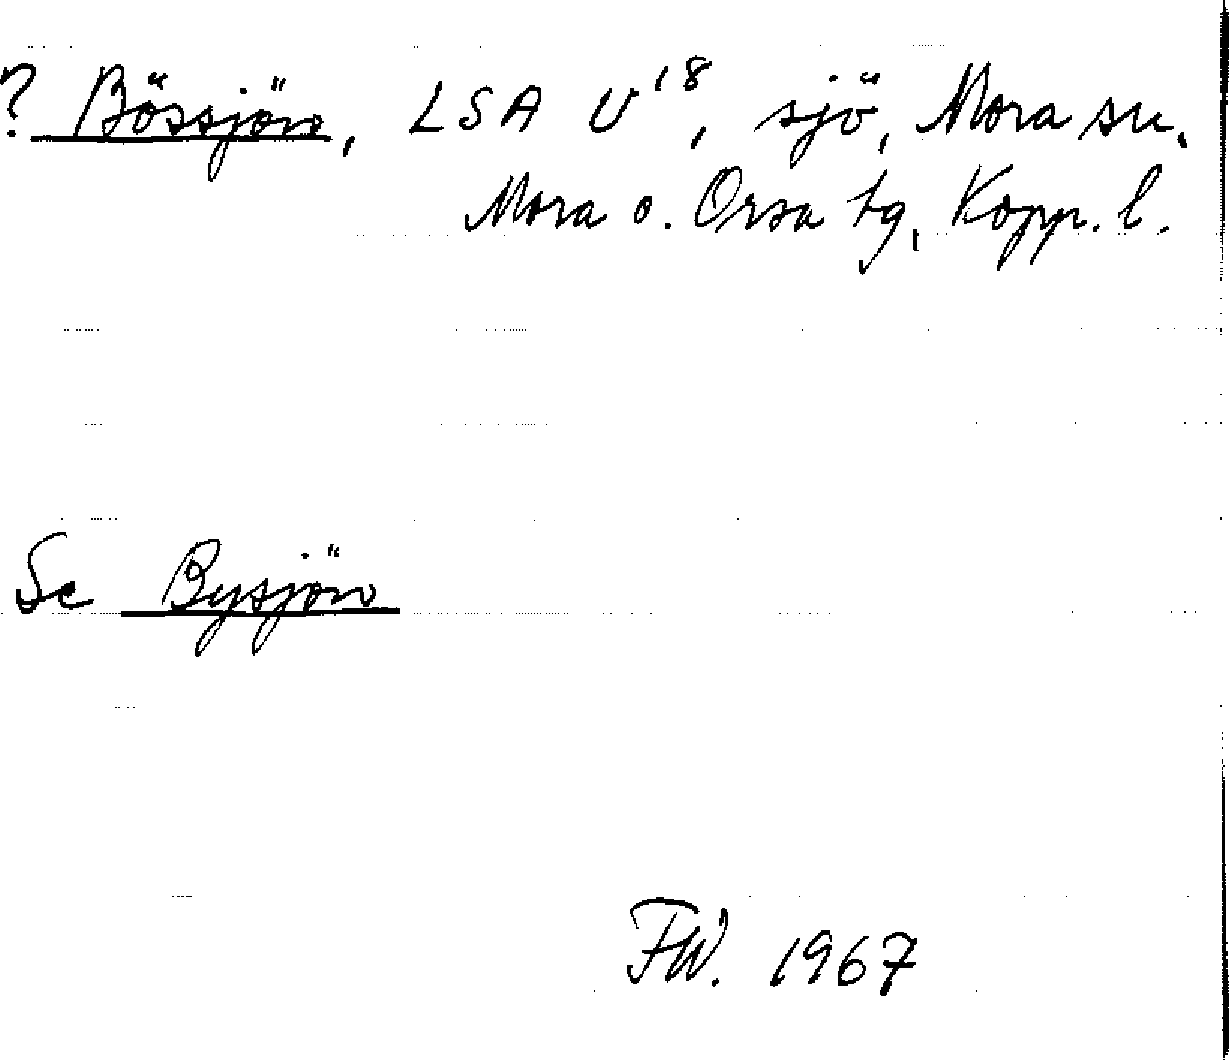 ? Bössjön, LSA U¹⁸, sjö, Mora sn,
Mora o. Orsa tg, Kopp. l.
Se Bysjön
FW. 1967